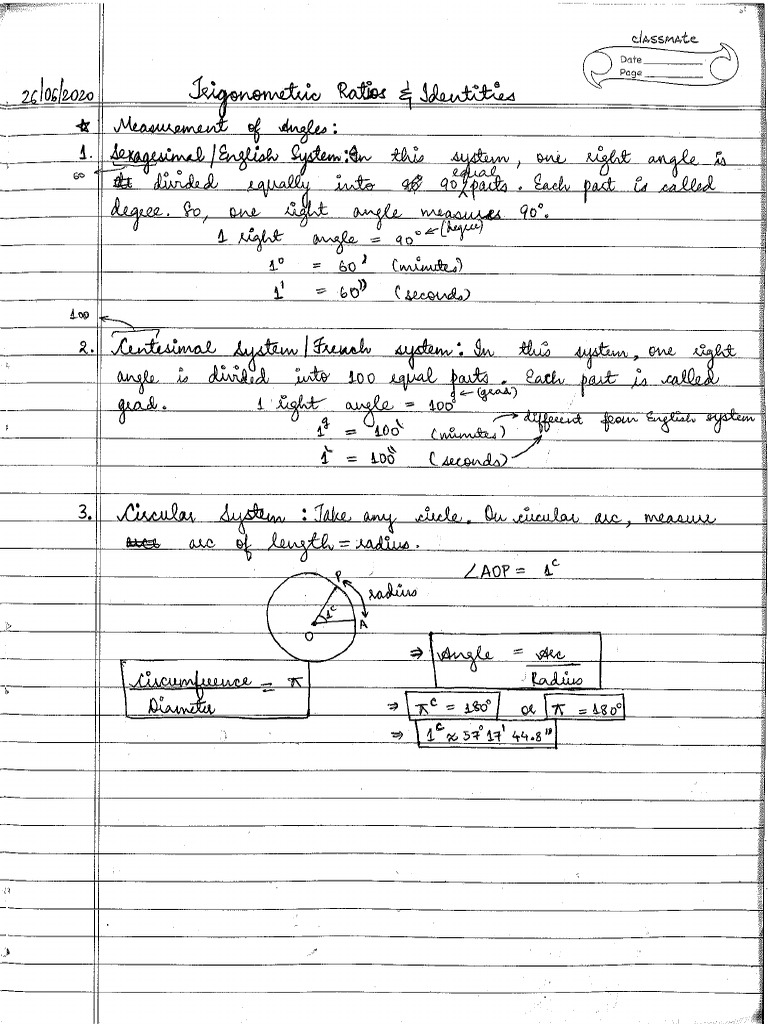 classmate
Date
Page
26/06/2020 Trigonometric Ratios & Identities
☆ Measurement of Angles:
1. Sexagesimal/English System: In this system, one right angle is
60 divided equally into 90 equal parts. Each part is called
degree. So, one right angle measures 90°.
1 right angle = 90° ← (degree)
1° = 60' (minutes)
1' = 60'' (seconds)
100
2. Centesimal System/French system: In this system, one right
angle is divided into 100 equal parts. Each part is called
grad. 1 right angle = 100ᵍ ← (grad)
1ᵍ = 100‵ (minutes) → different from English system
1‵ = 100‶ (seconds)
3. Circular System: Take any circle. On circular arc, measure
arc of length = radius.
∠AOP = 1ᶜ
P
radius
1ᶜ
O
A
⇒ Angle = Arc / Radius
Circumference / Diameter = π
⇒ πᶜ = 180° or π = 180°
⇒ 1ᶜ ≈ 57° 17' 44.8''